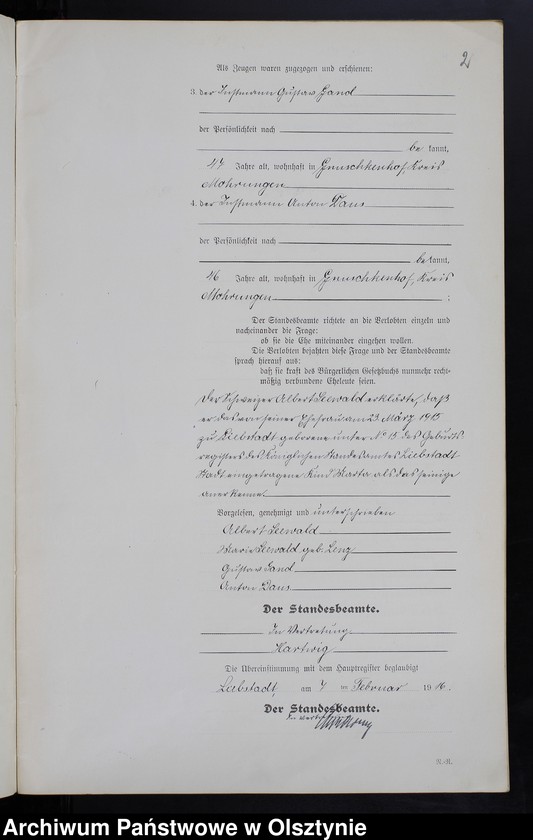 2
Als Zeugen waren zugezogen und erschienen:
3. der Instmann Gustav Sand
der Persönlichkeit nach
be kannt,
47 Jahre alt, wohnhaft in Gnuschkenhof, Kreis
Mohrungen
4. der Instmann Anton Daus
der Persönlichkeit nach
be kannt,
46 Jahre alt, wohnhaft in Gnuschkenhof, Kreis
Mohrungen ;
Der Standesbeamte richtete an die Verlobten einzeln und
nacheinander die Frage:
ob sie die Ehe miteinander eingehen wollen.
Die Verlobten bejahten diese Frage und der Standesbeamte
sprach hierauf aus:
daß sie kraft des Bürgerlichen Gesetzbuchs nunmehr recht-
mäßig verbundene Eheleute seien.
Der Schweizer Albert Seewald erklärte, daß
er das von seiner Ehefrau am 23. März 1915
zu Liebstadt geborene unter No 15 des Geburts
registers des Königlichen Standesamtes Liebstadt
Stadt eingetragene Kind Marta als das seinige
anerkenne.
Vorgelesen, genehmigt und unterschrieben
Albert Seewald
Marie Seewald geb. Lenz
Gustav Sand
Anton Daus
Der Standesbeamte.
In Vertretung
Hartwig
Die Übereinstimmung mit dem Hauptregister beglaubigt
Liebstadt, am 7 ten Februar 1916.
Der Standesbeamte.
In Vertr.
R.-R.
Archiwum Państwowe w Olsztynie